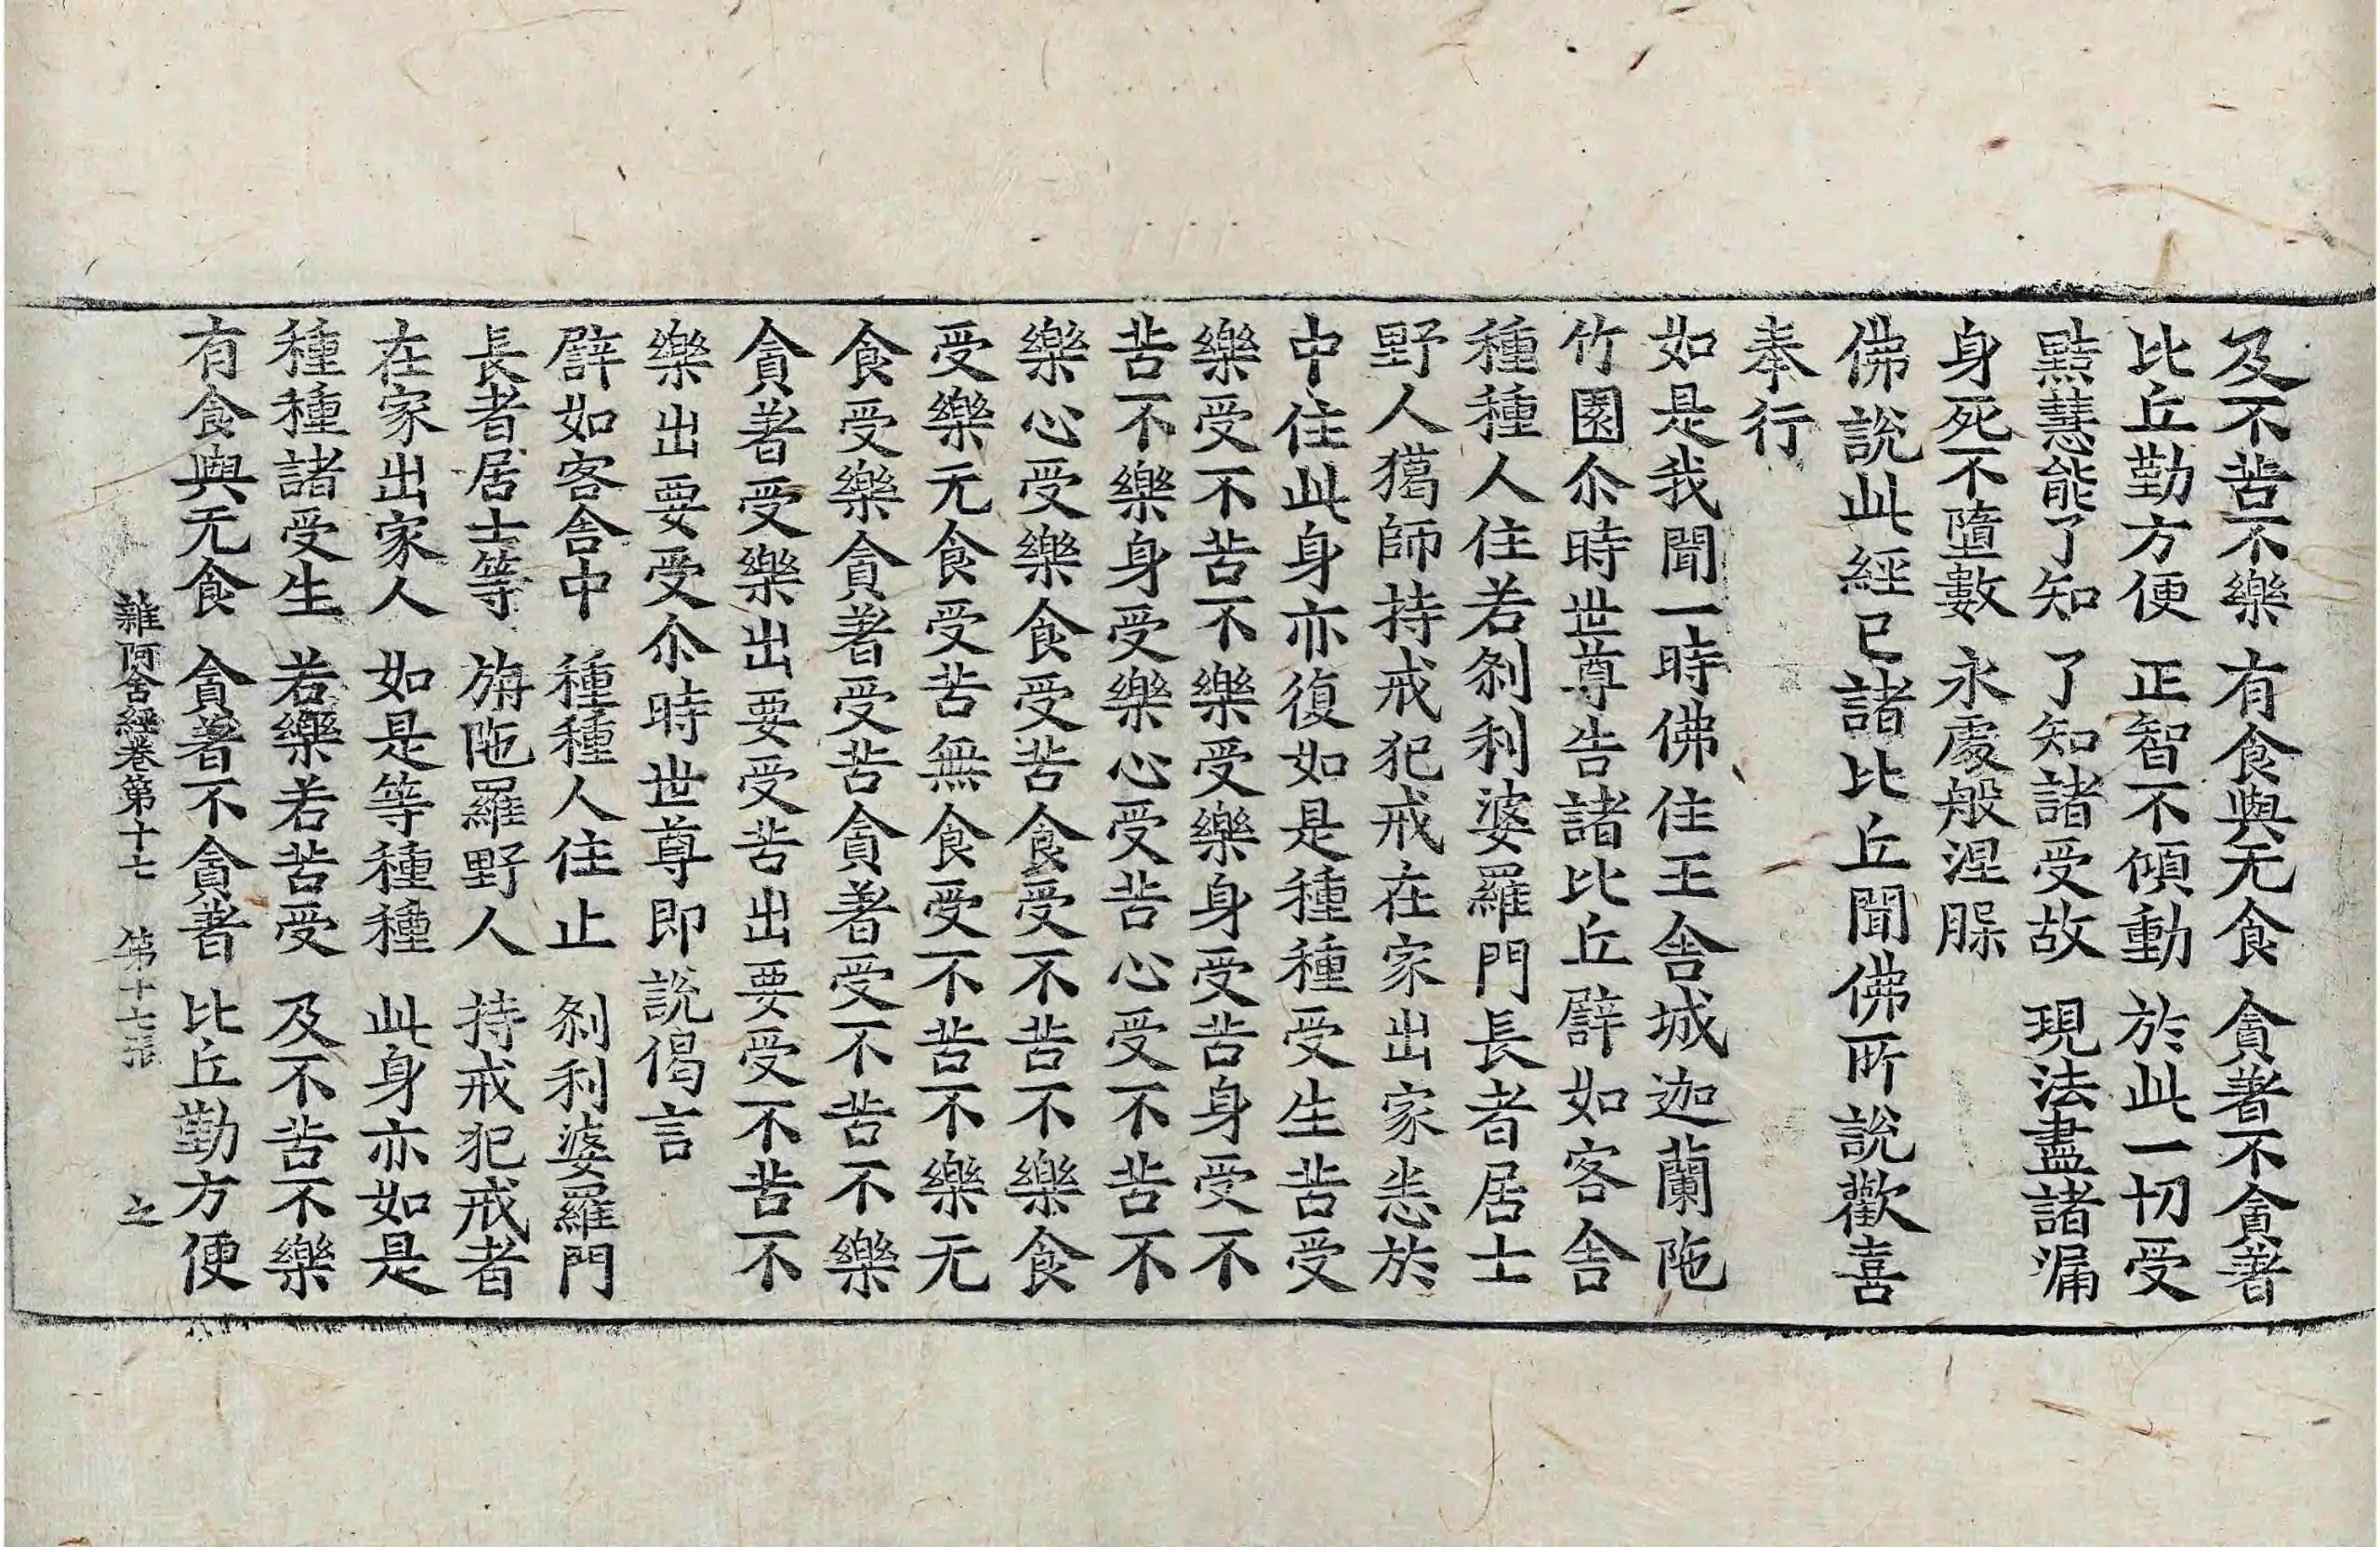 及不苦不樂　有食與无食　貪著不貪著
比丘勤方便　正智不傾動　於此一切受
黠慧能了知　了知諸受故　現法盡諸漏
身死不墮數　永處般涅槃
佛說此經已諸比丘聞佛所說歡喜
奉行
如是我聞一時佛住王舍城迦蘭陁
竹園尒時世尊告諸比丘譬如客舍
種種人住若剎利婆羅門長者居士
野人獦師持戒犯戒在家出家悉於
中住此身亦復如是種種受生苦受
樂受不苦不樂受樂身受苦身受不
苦不樂身受樂心受苦心受不苦不
樂心受樂食受苦食受不苦不樂食
受樂无食受苦無食受不苦不樂无
食受樂貪著受苦貪著受不苦不樂
貪著受樂出要受苦出要受不苦不
樂出要受尒時世尊即說偈言
譬如客舍中　種種人住止　剎利婆羅門
長者居士等　旃陁羅野人　持戒犯戒者
在家出家人　如是等種種　此身亦如是
種種諸受生　若樂若苦受　及不苦不樂
有食與无食　貪著不貪著　比丘勤方便
雜阿含經卷第十七　第十七張　之